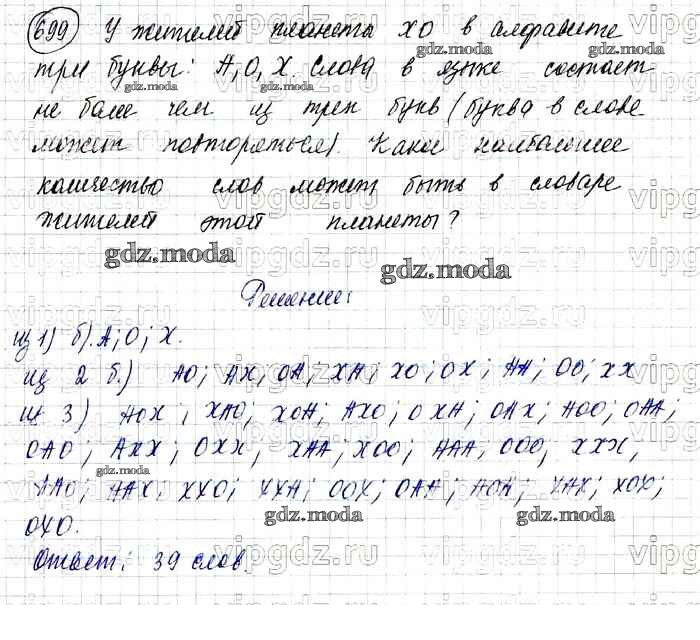 699) У жителей планета ХО в алфавите
три буквы: А, О, Х. Слова в языке состоят
не более чем из трех букв (буква в слове
может повторяться). Какое наибольшее
количество слов может быть в словаре
жителей этой планеты?
Решение:
из 1) б). А; О; Х.
из 2 б.) АО; АХ; ОА; ХА; ХО; ОХ; АА; ОО; ХХ
из 3) АОХ; ХАО; ХОА; АХО; ОХА; ОАХ; АОО; ОАА;
ОАО; АХХ; ОХХ; ХАА; ХОО; ААА; ООО; ХХХ,
ААО; ААХ; ХХО; ХХА; ООХ; ОАА; АОА; ХАХ; ХОХ;
ОХО.
Ответ: 39 слов.
gdz.moda
vipgdz.ru